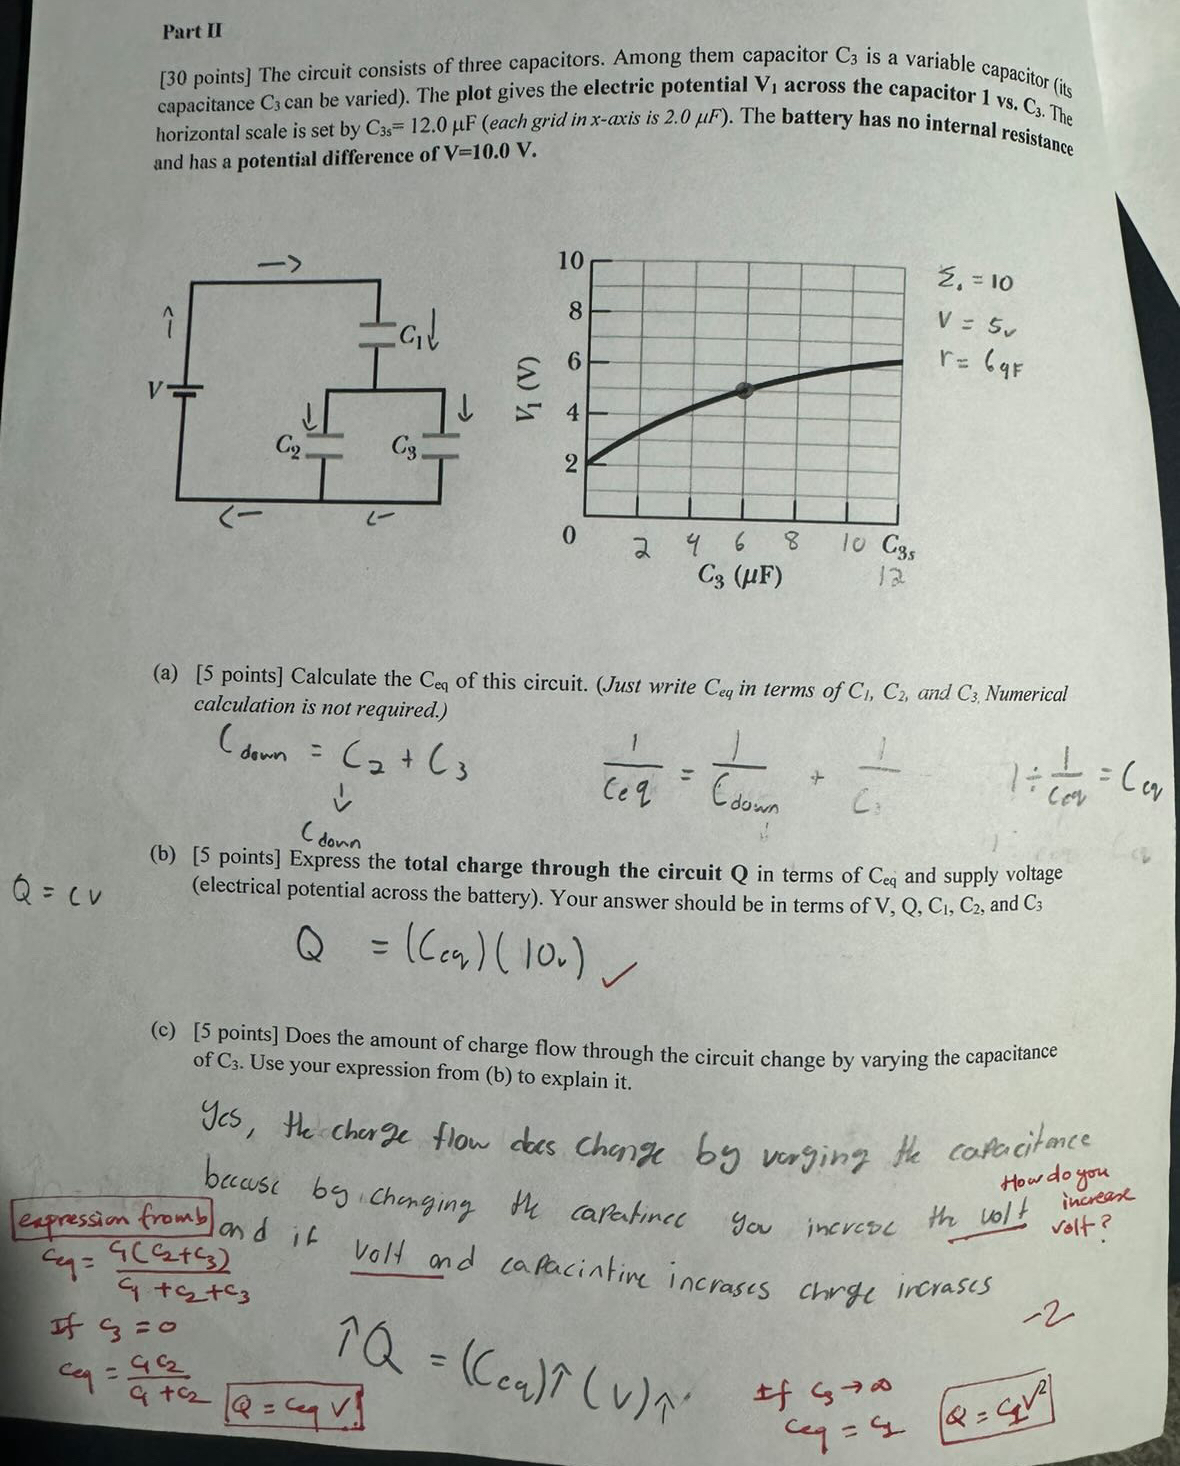 Part II
[30 points] The circuit consists of three capacitors. Among them capacitor C₃ is a variable capacitor (its
capacitance C₃ can be varied). The plot gives the electric potential V₁ across the capacitor 1 vs. C₃. The
horizontal scale is set by C₃ₛ= 12.0 μF (each grid in x-axis is 2.0 μF). The battery has no internal resistance
and has a potential difference of V=10.0 V.
V
C₁
C₂
C₃
V₁ (V)
10
8
6
4
2
0
2 4 6 8 10 C₃ₛ
12
C₃ (μF)
= 10
V = 5v
r = 6qF
(a) [5 points] Calculate the Ceq of this circuit. (Just write Ceq in terms of C₁, C₂, and C₃. Numerical
calculation is not required.)
Cdown = C₂ + C₃
↓
Cdown
1/Ceq = 1/Cdown + 1/C
1 ÷ 1/Ceq = Ceq
(b) [5 points] Express the total charge through the circuit Q in terms of Ceq and supply voltage
(electrical potential across the battery). Your answer should be in terms of V, Q, C₁, C₂, and C₃
Q = CV
Q = (Ceq)(10v) ✓
(c) [5 points] Does the amount of charge flow through the circuit change by varying the capacitance
of C₃. Use your expression from (b) to explain it.
Yes, the charge flow does change by varging the capacitance
because by changing the capatince you increse the volt
How do you
increase
volt?
and if volt and capacintine increases chrge incrases
↑Q = (Ceq)↑ (V)↑
-2
expression from b
Ceq = C₁(C₂+C₃)/C₁+C₂+C₃
If C₃ = 0
Ceq = C₁C₂/C₁+C₂
Q = Ceq V
If C₃ → ∞
Ceq = C₁
Q = C₁V²